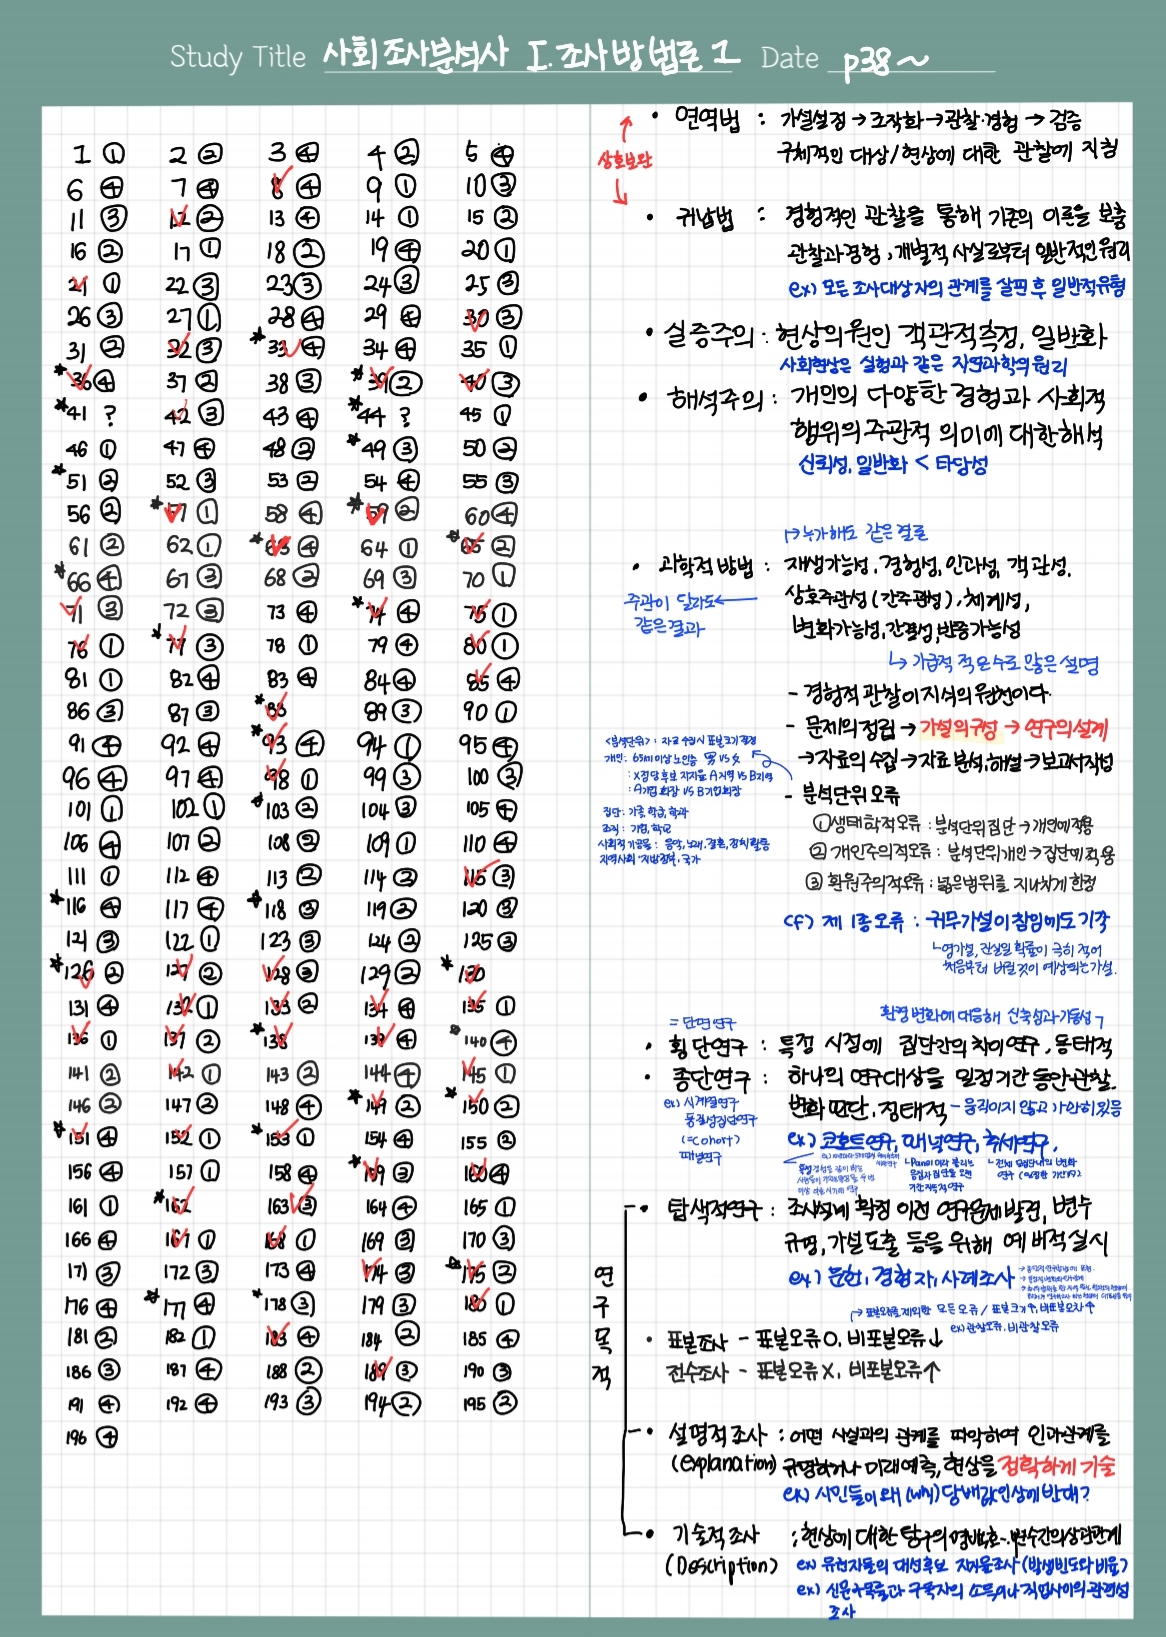 Study Title 사회조사분석사 I. 조사방법론 1 Date p38~
1 ① 2 ② 3 ④ 4 ② 5 ④
6 ④ 7 ④ 8 ④ 9 ① 10 ③
11 ③ 12 ② 13 ④ 14 ① 15 ②
16 ② 17 ① 18 ② 19 ④ 20 ①
21 ① 22 ③ 23 ③ 24 ③ 25 ③
26 ③ 27 ① 28 ④ 29 ④ 30 ③
31 ② 32 ③ 33 ④ 34 ④ 35 ①
36 ④ 37 ② 38 ③ 39 ② 40 ③
41 ? 42 ③ 43 ④ 44 ? 45 ①
46 ① 47 ④ 48 ② 49 ③ 50 ②
51 ② 52 ③ 53 ② 54 ④ 55 ③
56 ② 57 ① 58 ④ 59 ② 60 ④
61 ② 62 ① 63 ④ 64 ① 65 ②
66 ④ 67 ③ 68 ② 69 ③ 70 ①
71 ③ 72 ③ 73 ④ 74 ④ 75 ①
76 ① 77 ③ 78 ① 79 ④ 80 ①
81 ① 82 ④ 83 ④ 84 ④ 85 ④
86 ③ 87 ③ 88 89 ③ 90 ①
91 ④ 92 ④ 93 ④ 94 ① 95 ④
96 ④ 97 ④ 98 ① 99 ③ 100 ③
101 ① 102 ① 103 ② 104 ③ 105 ④
106 ④ 107 ② 108 ③ 109 ① 110 ④
111 ① 112 ④ 113 ② 114 ② 115 ③
116 ④ 117 ④ 118 ③ 119 ② 120 ③
121 ③ 122 ① 123 ③ 124 ② 125 ③
126 ② 127 ② 128 ③ 129 ② 130
131 ④ 132 ① 133 ② 134 ④ 135 ①
136 ① 137 ② 138 139 ④ 140 ④
141 ② 142 ① 143 ② 144 ④ 145 ①
146 ② 147 ② 148 ④ 149 ② 150 ②
151 ④ 152 ① 153 ① 154 ④ 155 ②
156 ④ 157 ① 158 ④ 159 ③ 160 ④
161 ① 162 163 ③ 164 ④ 165 ①
166 ④ 167 ① 168 ① 169 ③ 170 ③
171 ③ 172 ③ 173 ④ 174 ③ 175 ②
176 ④ 177 ④ 178 ③ 179 ③ 180 ①
181 ② 182 ① 183 ④ 184 ② 185 ④
186 ③ 187 ④ 188 ② 189 ③ 190 ③
191 ④ 192 ④ 193 ③ 194 ② 195 ②
196 ④
• 연역법 : 가설설정 → 조작화 → 관찰·경험 → 검증
상호보완
구체적인 대상/현상에 대한 관찰에 지침
• 귀납법 : 경험적인 관찰을 통해 기존의 이론을 보충
관찰과 경험, 개별적 사실로부터 일반적인 원리
ex) 모든 조사대상자의 관계를 살핀 후 일반적유형
• 실증주의 : 현상의 원인 객관적 측정, 일반화
사회현상은 실험과 같은 자연과학의 원리
• 해석주의 : 개인의 다양한 경험과 사회적
행위의 주관적 의미에 대한 해석
신뢰성, 일반화 < 타당성
↱ 누가해도 같은 결론
• 과학적 방법 : 재생가능성, 경험성, 인과성, 객관성,
주관이 달라도 ← 상호주관성 (간주관성), 체계성,
같은 결과
변화가능성, 간결성, 반증가능성
↳ 가급적 적은수로 많은 설명
- 경험적 관찰이 지식의 원천이다.
- 문제의 정립 → 가설의 구성 → 연구의 설계
→ 자료의 수집 → 자료 분석, 해석 → 보고서작성
- 분석단위 오류
<분석단위> : 자료 수집시 표본크기 결정
개인 : 65세 이상 노인층 男 VS 女
: X정당 후보 지지율 A지역 VS B지역
: A기업 회장 VS B기업회장
집단 : 가족, 학급, 학과
조직 : 기업, 학교
사회적 가공물 : 음악, 노래, 결혼, 정치활동
지역사회·지방정부, 국가
① 생태학적오류 : 분석단위 집단 → 개인에 적용
② 개인주의적오류 : 분석단위 개인 → 집단에 적용
③ 환원주의적오류 : 넓은 범위를 지나치게 한정
cf) 제 1종 오류 : 귀무가설이 참임에도 기각
└ 영가설, 진실일 확률이 극히 적어
처음부터 버릴 것이 예상되는 가설.
환경 변화에 대응해 신축성과 가능성 ㄱ
= 단면 연구
• 횡단연구 : 특정 시점에 집단간의 차이 연구, 동태적
• 종단연구 : 하나의 연구대상을 일정기간 동안 관찰.
변화 판단, 정태적 - 움직이지 않고 가만히 있음
ex) 시계열연구
동질성집단연구
(=cohort)
패널연구
ex) 코호트연구, 패널연구, 추세연구.
└ Panel이라 불리는
응답자 집단을 오랜
기간 지속적 연구
• 탐색적연구 : 조사설계 확정 이전 연구문제 발견, 변수
규명, 가설도출 등을 위해 예비적 실시
ex) 문헌, 경험자, 사례조사
연구목적
→ 표본오류를 제외한 모든 오류 / 표본크기↑, 비표본오차↑
ex) 관찰오류, 비관찰오류
• 표본조사 - 표본오류 O, 비표본오류↓
전수조사 - 표본오류 X, 비표본오류↑
• 설명적 조사 : 어떤 사실과의 관계를 파악하여 인과관계를
(explanation) 규명하거나 미래예측, 현상을 정확하게 기술
ex) 시민들이 왜 (why) 담배값 인상에 반대?
• 기술적 조사 : 현상에 대한 탐구와 명백화·변수간의 상관관계
(Description) ex) 유권자들의 대선후보 지지율조사 (발생빈도와 비율)
ex) 신문구독률과 구독자의 소득이나 직업사이의 관련성
조사